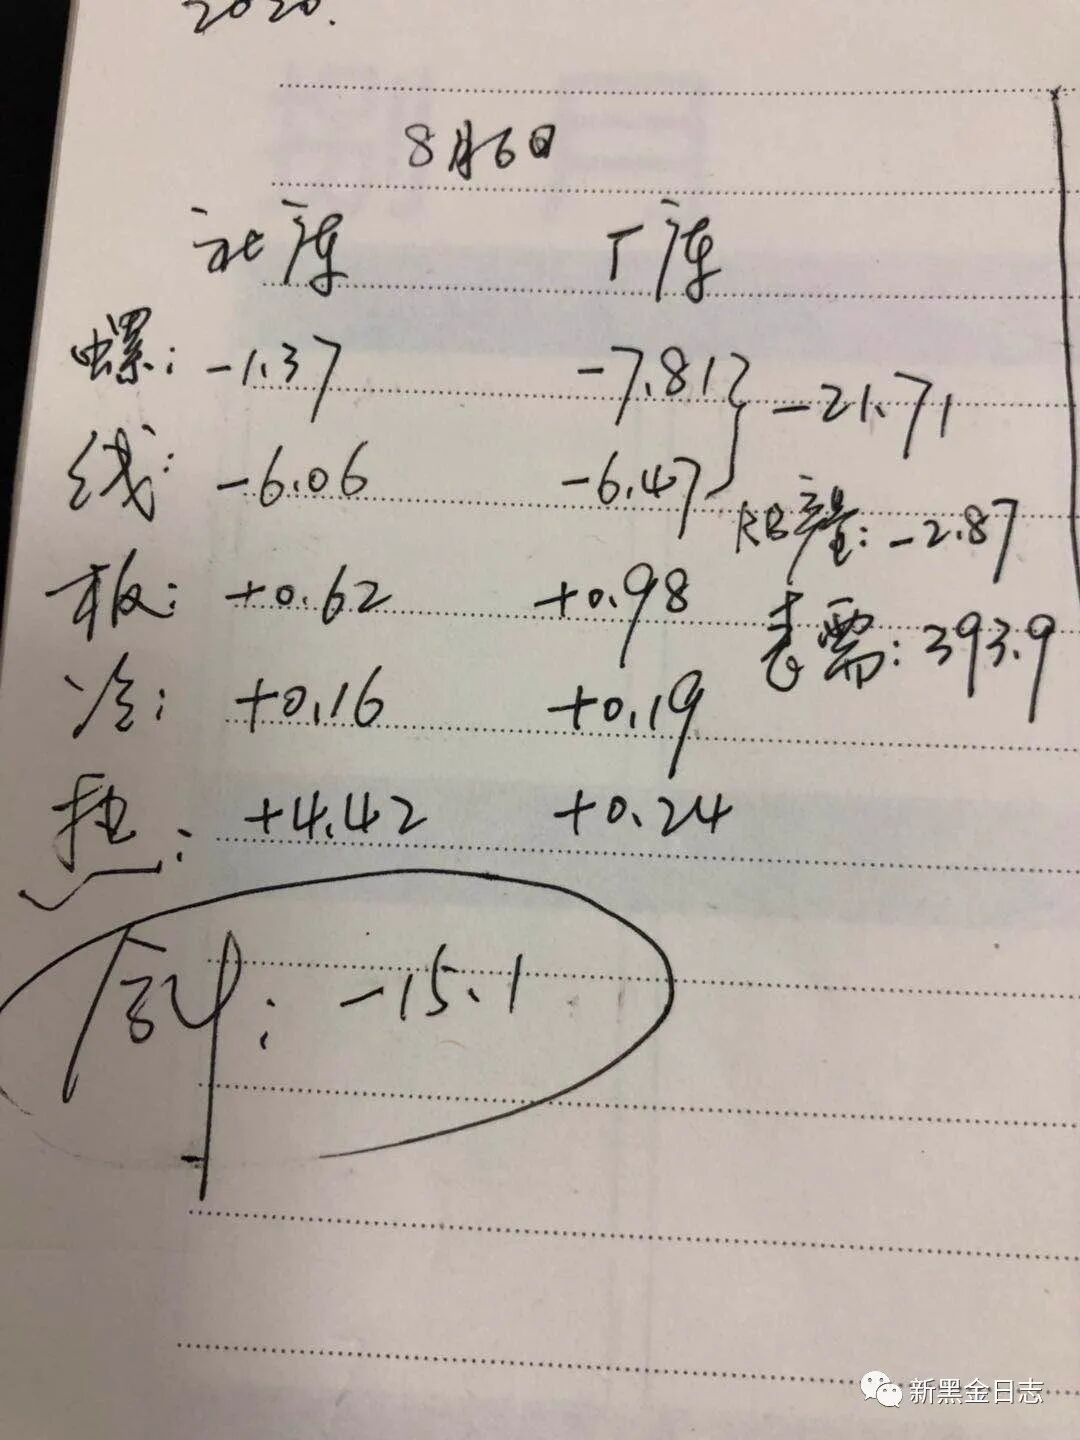 2020.
8月6日
社库 厂库
螺: -1.37 -7.81 } -21.71
线: -6.06 -6.47
RB产量: -2.87
板: +0.62 +0.98
表需: 393.9
冷: +0.16 +0.19
热: +4.42 +0.24
合计: -15.1
新黑金日志